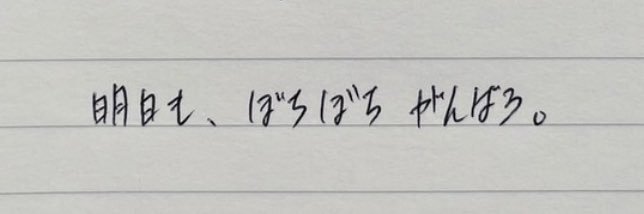 明日も、ぼちぼち がんばろ。